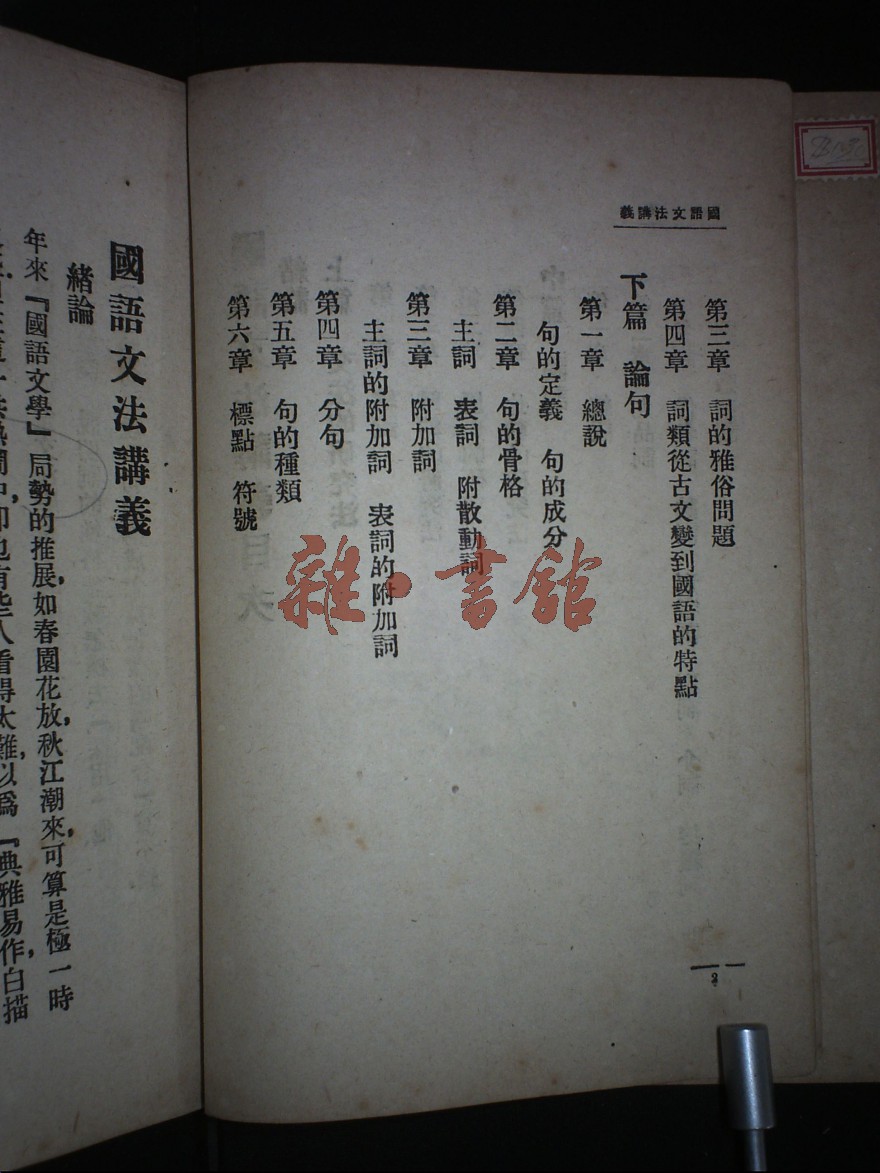 國語文法講義
第三章 詞的雅俗問題
第四章 詞類從古文變到國語的特點
下篇 論句
第一章 總說
句的定義 句的成分
第二章 句的骨格
主詞 表詞 附散動詞
第三章 附加詞
主詞的附加詞 表詞的附加詞
第四章 分句
第五章 句的種類
第六章 標點 符號
2
雜·書館
國語文法講義
緒論
年來『國語文學』局勢的推展,如春園花放,秋江潮來,可算是極一時
熱鬧中,却也有些人看得太難,以爲『典雅易作,白描